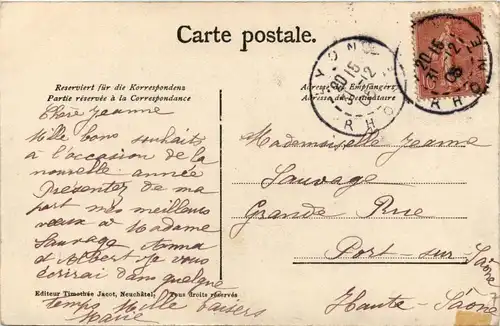 Carte postale.
Reserviert für die Korrespondenz
Partie réservée à la Correspondance
Adresse des Empfängers
Adresse du Destinataire
LYON
20 15
31 -12
RHONE
20 15
31 12
RHONE
Chère Jeanne
Mille bons souhaits
à l'occasion de la
nouvelle année
Présentez de ma
part mes meilleurs
vœux à Madame
Sauvage, Anna
et Albert je vous
écrirai dans quelque
temps Mille baisers
Marie
Mademoiselle Jeanne
Sauvage
Grande Rue
Port-sur-Saône
Haute-Saône
Editeur Timothée Jacot, Neuchâtel, Tous droits réservés